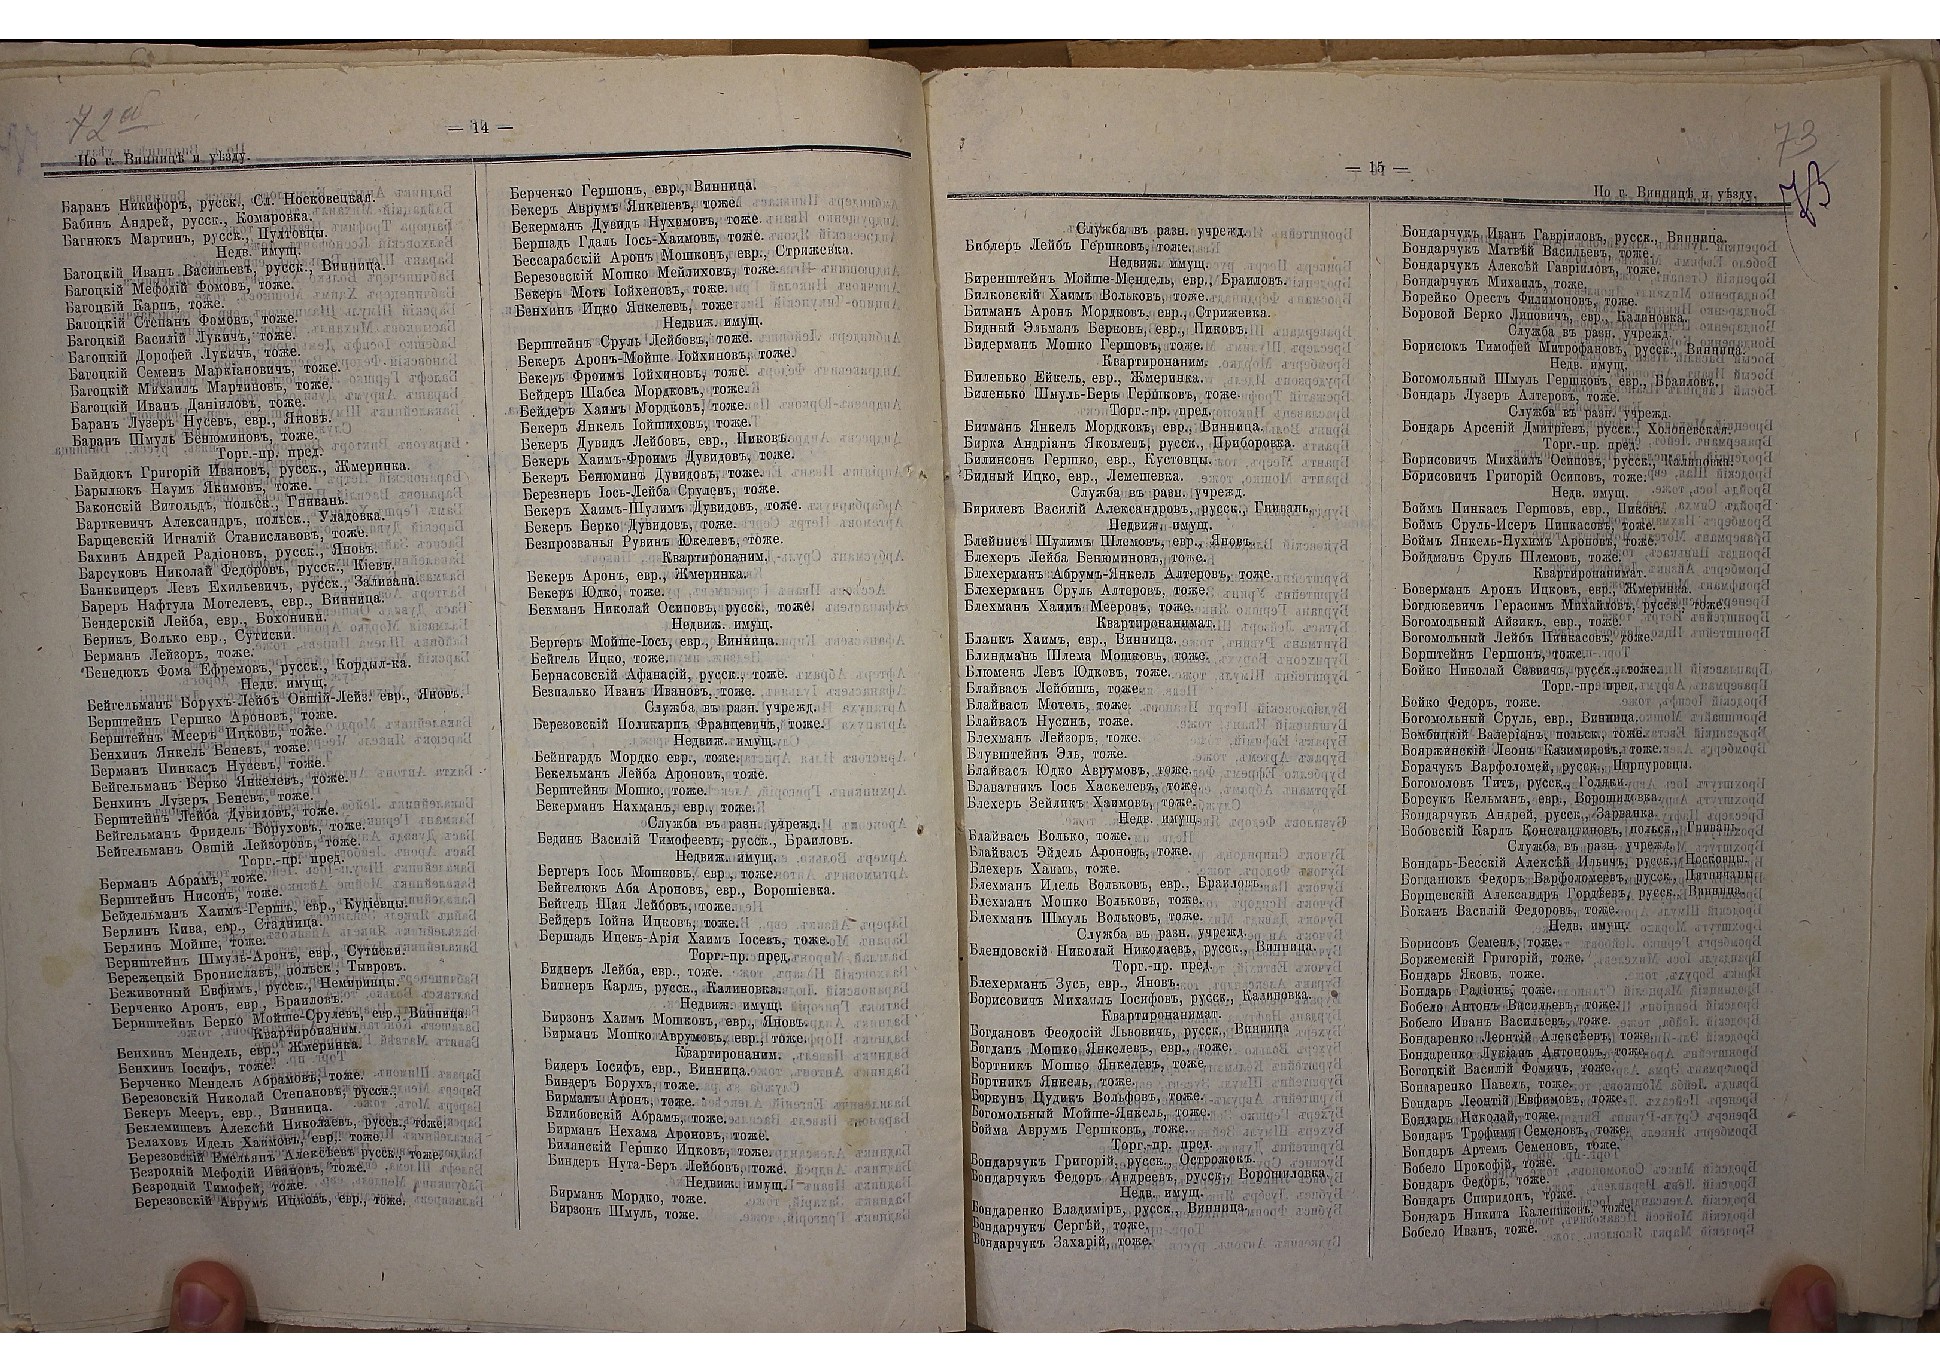 72об
— 14 —
По г. Винницѣ и уѣзду.
Баранъ Никифоръ, русск., Сл. Носковецкая.
Бабинъ Андрей, русск., Комаровка.
Багнюкъ Мартинъ, русск., Пултовцы.
Недв. имущ.
Багоцкій Иванъ Васильевъ, русск., Винница.
Багоцкій Мефодій Фомовъ, тоже.
Багоцкій Карпъ, тоже.
Багоцкій Степанъ Фомовъ, тоже.
Багоцкій Василій Лукичъ, тоже.
Багоцкій Дорофей Лукичъ, тоже.
Багоцкій Семенъ Маркіановичъ, тоже.
Багоцкій Михаилъ Мартиновъ, тоже.
Багоцкій Иванъ Даніиловъ, тоже.
Баранъ Лузеръ Нусевъ, евр., Яновъ.
Баранъ Шмуль Бенюминовъ, тоже.
Торг.-пр. пред.
Байдюкъ Григорій Ивановъ, русск., Жмеринка.
Барылюкъ Наумъ Якимовъ, тоже.
Баконскій Витольдъ, польск., Гнивань.
Барткевичъ Александръ, польск., Уладовка.
Барщевскій Игнатій Станиславовъ, тоже.
Бахинъ Андрей Радіоновъ, русск., Яновъ.
Барсуковъ Николай Федоровъ, русск., Кіевъ.
Банквицеръ Левъ Ехильевичъ, русск., Заливана.
Бареръ Нафтула Мотелевъ, евр., Винница.
Бендерскій Лейба, евр., Бохоники.
Берикъ, Волько евр., Сутиски.
Берманъ Лейзоръ, тоже.
Бенедюкъ Фома Ефремовъ, русск., Кордыл-ка.
Недв. имущ.
Бейгельманъ Борухъ-Лейбъ Овшій-Лейз. евр., Яновъ.
Берштейнъ Гершко Ароновъ, тоже.
Берштейнъ Мееръ Ицковъ, тоже.
Бенхинъ Янкель Беневъ, тоже.
Берманъ Пинкасъ Нусевъ, тоже.
Бейгельманъ Берко Янкелевъ, тоже.
Бенхинъ Лузеръ Беневъ, тоже.
Берштейнъ Лейба Дувидовъ, тоже.
Бейгельманъ Фридель Боруховъ, тоже.
Бейгельманъ Овшій Лейзоровъ, тоже.
Торг.-пр. пред.
Берманъ Абрамъ, тоже.
Берштейнъ Нисонъ, тоже.
Бейдельманъ Хаимъ-Гершъ, евр., Кудіевцы.
Берлинъ Кива, евр., Стадница.
Берлинъ Мойше, тоже.
Бернштейнъ Шмуль-Аронъ, евр., Сутиски.
Бережецкій Брониславъ, польск., Тывровъ.
Беживотный Евфимъ, русск., Немиринцы.
Берченко Аронъ, евр., Браиловъ.
Бериштейнъ Берко Мойше-Срулевъ, евр., Винница.
Квартиронаним.
Бенхинъ Мендель, евр., Жмеринка.
Бенхинъ Іосифъ, тоже.
Берченко Мендель Абрамовъ, тоже.
Березовскій Николай Степановъ, русск.,
Бекеръ Мееръ, евр., Винница.
Беклемишевъ Алексѣй Николаевъ, русск., тоже.
Белаховъ Идель Хаимовъ, евр., тоже.
Березовскій Емельянъ Алексѣевъ русск., тоже.
Безродній Мефодій Ивановъ, тоже.
Безродній Тимофей, тоже.
Березовскій Аврумъ Ицковъ, евр., тоже.
Берченко Гершонъ, евр., Винница.
Бекеръ Аврумъ Янкелевъ, тоже.
Бекерманъ Дувидъ Нухимовъ, тоже.
Бершадь Гдаль Іось-Хаимовъ, тоже.
Бессарабскій Аронъ Мошковъ, евр., Стрижевка.
Березовскій Мошко Мейлиховъ, тоже.
Бекеръ Моть Іойхеновъ, тоже.
Бенхинъ Ицко Янкелевъ, тоже
Недвиж. имущ.
Берштейнъ Сруль Лейбовъ, тоже.
Бекеръ Аронъ-Мойше Іойхиновъ, тоже.
Бекеръ Фроимъ Іойхиновъ, тоже.
Бейдеръ Шабса Мордковъ, тоже.
Бейдеръ Хаимъ Мордковъ, тоже.
Бекеръ Янкель Іойшиховъ, тоже.
Бекеръ Дувидъ Лейбовъ, евр., Пиковъ.
Бекеръ Хаимъ-Фроимъ Дувидовъ, тоже.
Бекеръ Бенюминъ Дувидовъ, тоже.
Березнеръ Іось-Лейба Срулевъ, тоже.
Бекеръ Хаимъ-Шулимъ Дувидовъ, тоже.
Бекеръ Берко Дувидовъ, тоже.
Безпрозванья Рувинъ Юкелевъ, тоже.
Квартиронаним.
Бекеръ Аронъ, евр., Жмеринка.
Бекеръ Юдко, тоже.
Бекманъ Николай Осиповъ, русск., тоже.
Недвиж. имущ.
Бергеръ Мойше-Іось, евр., Винница.
Бейгель Ицко, тоже.
Бернасовскій Афанасій, русск., тоже.
Безпалько Иванъ Ивановъ, тоже.
Служба въ разн. учрежд.
Березовскій Поликарпъ Францевичъ, тоже.
Недвиж. имущ.
Бейнгардъ Мордко евр., тоже.
Бекельманъ Лейба Ароновъ, тоже.
Берштейнъ Мошко, тоже.
Бекерманъ Нахманъ, евр., тоже.
Служба въ разн. учрежд.
Бединъ Василій Тимофеевъ, русск., Браиловъ.
Недвиж. имущ.
Бергеръ Іось Мошковъ, евр., тоже.
Бейгелюкъ Аба Ароновъ, евр., Ворошіевка.
Бейгель Шая Лейбовъ, тоже.
Бейдеръ Іойна Ицковъ, тоже.
Бершадь Ицекъ-Арія Хаимъ Іосевъ, тоже.
Торг.-пр. пред.
Биднеръ Лейба, евр., тоже.
Битнеръ Карлъ, русск., Калиновка.
Недвиж. имущ.
Бирзонъ Хаимъ Мошковъ, евр., Яновъ.
Бирманъ Мошко Аврумовъ, евр., тоже.
Квартиронаним.
Бидеръ Іосифъ, евр., Винница.
Биндеръ Борухъ, тоже.
Бирманъ Аронъ, тоже.
Билибовскій Абрамъ, тоже.
Бирманъ Нехама Ароновъ, тоже.
Билинскій Гершко Ицковъ, тоже.
Биндеръ Нута-Беръ Лейбовъ, тоже.
Недвиж. имущ.
Бирманъ Мордко, тоже.
Бирзонъ Шмуль, тоже.
73
73
— 15 —
По г. Винницѣ и уѣзду.
Служба въ разн. учрежд.
Библеръ Лейбъ Гершковъ, тоже.
Недвиж. имущ.
Биренштейнъ Мойше-Мендель, евр., Браиловъ.
Билковскій Хаимъ Вольковъ, тоже.
Битманъ Аронъ Мордковъ, евр., Стрижевка.
Бидный Эльманъ Берковъ, евр., Пиковъ.
Бидерманъ Мошко Гершовъ, тоже.
Квартиронаним.
Биленько Ейкель, евр., Жмеринка.
Биленько Шмуль-Беръ Гершковъ, тоже.
Торг.-пр. пред.
Битманъ Янкель Мордковъ, евр., Винница.
Бирка Андріанъ Яковлевъ, русск., Приборовка.
Билинсонъ Гершко, евр., Кустовцы.
Бидный Ицко, евр., Лемешевка.
Служба въ разн. учрежд.
Бирилевъ Василій Александровъ, русск., Гнивань.
Недвиж. имущ.
Блейвисъ Шулимъ Шлемовъ, евр., Яновъ.
Блехеръ Лейба Бенюминовъ, тоже.
Блехерманъ Абрумъ-Янкель Алтеровъ, тоже.
Блехерманъ Сруль Алтеровъ, тоже.
Блехманъ Хаимъ Мееровъ, тоже.
Квартиронанимат.
Бланкъ Хаимъ, евр., Винница.
Блиндманъ Шлема Мошковъ, тоже.
Блюменъ Левъ Юдковъ, тоже.
Блайвасъ Лейбишъ, тоже.
Блайвасъ Мотель, тоже.
Блайвасъ Нусинъ, тоже.
Блехманъ Лейзоръ, тоже.
Блувштейнъ Эль, тоже.
Блайвасъ Юдко Аврумовъ, тоже.
Блаватникъ Іось Хаскелевъ, тоже.
Блехеръ Зейликъ Хаимовъ, тоже.
Недв. имущ.
Блайвасъ Волько, тоже.
Блайвасъ Эйдель Ароновъ, тоже.
Блехеръ Хаимъ, тоже.
Блехманъ Идель Вольковъ, евр., Браиловъ.
Блехманъ Мошко Вольковъ, тоже.
Блехманъ Шмуль Вольковъ, тоже.
Служба въ разн. учрежд.
Блендовскій Николай Николаевъ, русск., Винница.
Торг.-пр. пред.
Блехерманъ Зусь, евр., Яновъ.
Борисовичъ Михаилъ Іосифовъ, русск., Калиновка.
Квартиронанимат.
Богдановъ Феодосій Львовичъ, русск., Винница
Богданъ Мошко Янкелевъ, евр., тоже.
Бортникъ Мошко Янкелевъ, тоже.
Бортникъ Янкель, тоже.
Боркунъ Цудикъ Вольфовъ, тоже.
Богомольный Мойше-Янкель, тоже.
Бойма Аврумъ Гершковъ, тоже.
Торг.-пр. пред.
Бондарчукъ Григорій, русск., Острожокъ.
Бондарчукъ Федоръ Андреевъ, русск., Ворониловка
Недв. имущ.
Бондаренко Владиміръ, русск., Винница.
Бондарчукъ Сергѣй, тоже.
Бондарчукъ Захарій, тоже.
Бондарчукъ Иванъ Гавріиловъ, русск., Винница.
Бондарчукъ Матвѣй Васильевъ, тоже.
Бондарчукъ Алексѣй Гавріиловъ, тоже.
Бондарчукъ Михаилъ, тоже.
Борейко Орестъ Филимоновъ, тоже.
Боровой Берко Липовичъ, евр., Калиновка.
Служба въ разн. учрежд.
Борисюкъ Тимофей Митрофановъ, русск., Винница.
Недв. имущ.
Богомольный Шмуль Гершковъ, евр., Браиловъ.
Бондарь Лузеръ Алтеровъ, тоже.
Служба въ разн. учрежд.
Бондарь Арсеній Дмитріевъ, русск., Холоневская.
Торг.-пр. пред.
Борисовичъ Михаилъ Осиповъ, русск., Калиновка.
Борисовичъ Григорій Осиповъ, тоже.
Недв. имущ.
Боймъ Пинкасъ Гершовъ, евр., Пиковъ.
Боймъ Сруль-Исеръ Пинкасовъ, тоже.
Боймъ Янкель-Нухимъ Ароновъ, тоже.
Бойдманъ Сруль Шлемовъ, тоже.
Квартиронанимат.
Боверманъ Аронъ Ицковъ, евр., Жмеринка.
Богдюкевичъ Герасимъ Михайловъ, русск., тоже.
Богомольный Айзикъ, евр., тоже.
Богомольный Лейбъ Пинкасовъ, тоже.
Борштейнъ Гершонъ, тоже.
Бойко Николай Саввичъ, русск., тоже.
Торг.-пр. пред.
Бойко Федоръ, тоже.
Богомольный Сруль, евр., Винница.
Бомбицкій Валеріанъ, польск., тоже.
Бояржинскій Леонъ Казимировъ, тоже.
Борачукъ Варфоломей, русск., Пирпуровцы.
Богомоловъ Титъ, русск., Голяки.
Борсукъ Кельманъ, евр., Ворошиловка.
Бондарчукъ Андрей, русск., Зарванка.
Бобовскій Карлъ Константиновъ, польск., Гнивань.
Служба въ разн. учрежд.
Бондарь-Бесскій Алексѣй Ильичъ, русск., Носковцы.
Богданюкъ Федоръ Варфоломеевъ, русск., Пятничаны.
Борщевскій Александръ Гордѣевъ, русск., Винница.
Боканъ Василій Федоровъ, тоже.
Недв. имущ.
Борисовъ Семенъ, тоже.
Боржемскій Григорій, тоже.
Бондарь Яковъ, тоже.
Бондарь Радіонъ, тоже.
Бобело Антонъ Васильевъ, тоже.
Бобело Иванъ Васильевъ, тоже.
Бондаренко Леонтій Алексѣевъ, тоже.
Бондаренко Лукіанъ Антоновъ, тоже.
Богоцкій Василій Фомичъ, тоже.
Бондаренко Павелъ, тоже.
Бондарь Леонтій Евфимовъ, тоже.
Бондарь Николай, тоже.
Бондарь Трофимъ Семеновъ, тоже.
Бондарь Артемъ Семеновъ, тоже.
Бобело Прокофій, тоже.
Бондарь Федоръ, тоже.
Бондарь Спиридонъ, тоже.
Бондарь Никита Калениковъ, тоже.
Бобело Иванъ, тоже.